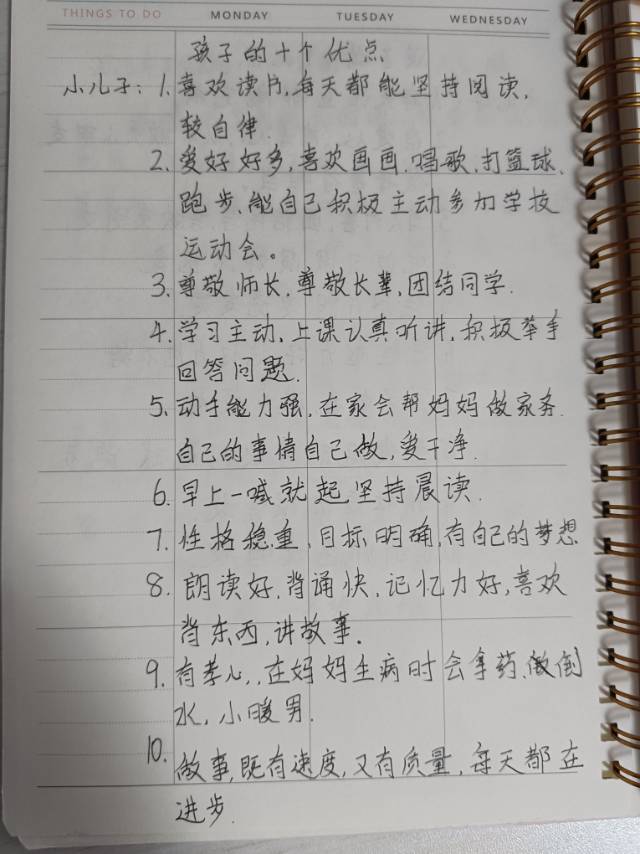 THINGS TO DO MONDAY TUESDAY WEDNESDAY
孩子的十个优点
小儿子：1.喜欢读书,每天都能坚持阅读,
较自律.
2.爱好好多,喜欢画画,唱歌,打篮球,
跑步,能自己积极主动参加学校
运动会。
3.尊敬师长,尊敬长辈,团结同学.
4.学习主动,上课认真听讲,积极举手
回答问题.
5.动手能力强,在家会帮妈妈做家务.
自己的事情自己做,爱干净.
6.早上一喊就起,坚持晨读.
7.性格稳重,目标明确,有自己的梦想
8.朗读好,背诵快,记忆力好,喜欢
背东西,讲故事.
9.有孝心,,在妈妈生病时会拿药、做倒
水,小暖男.
10.做事,既有速度,又有质量,每天都在
进步.